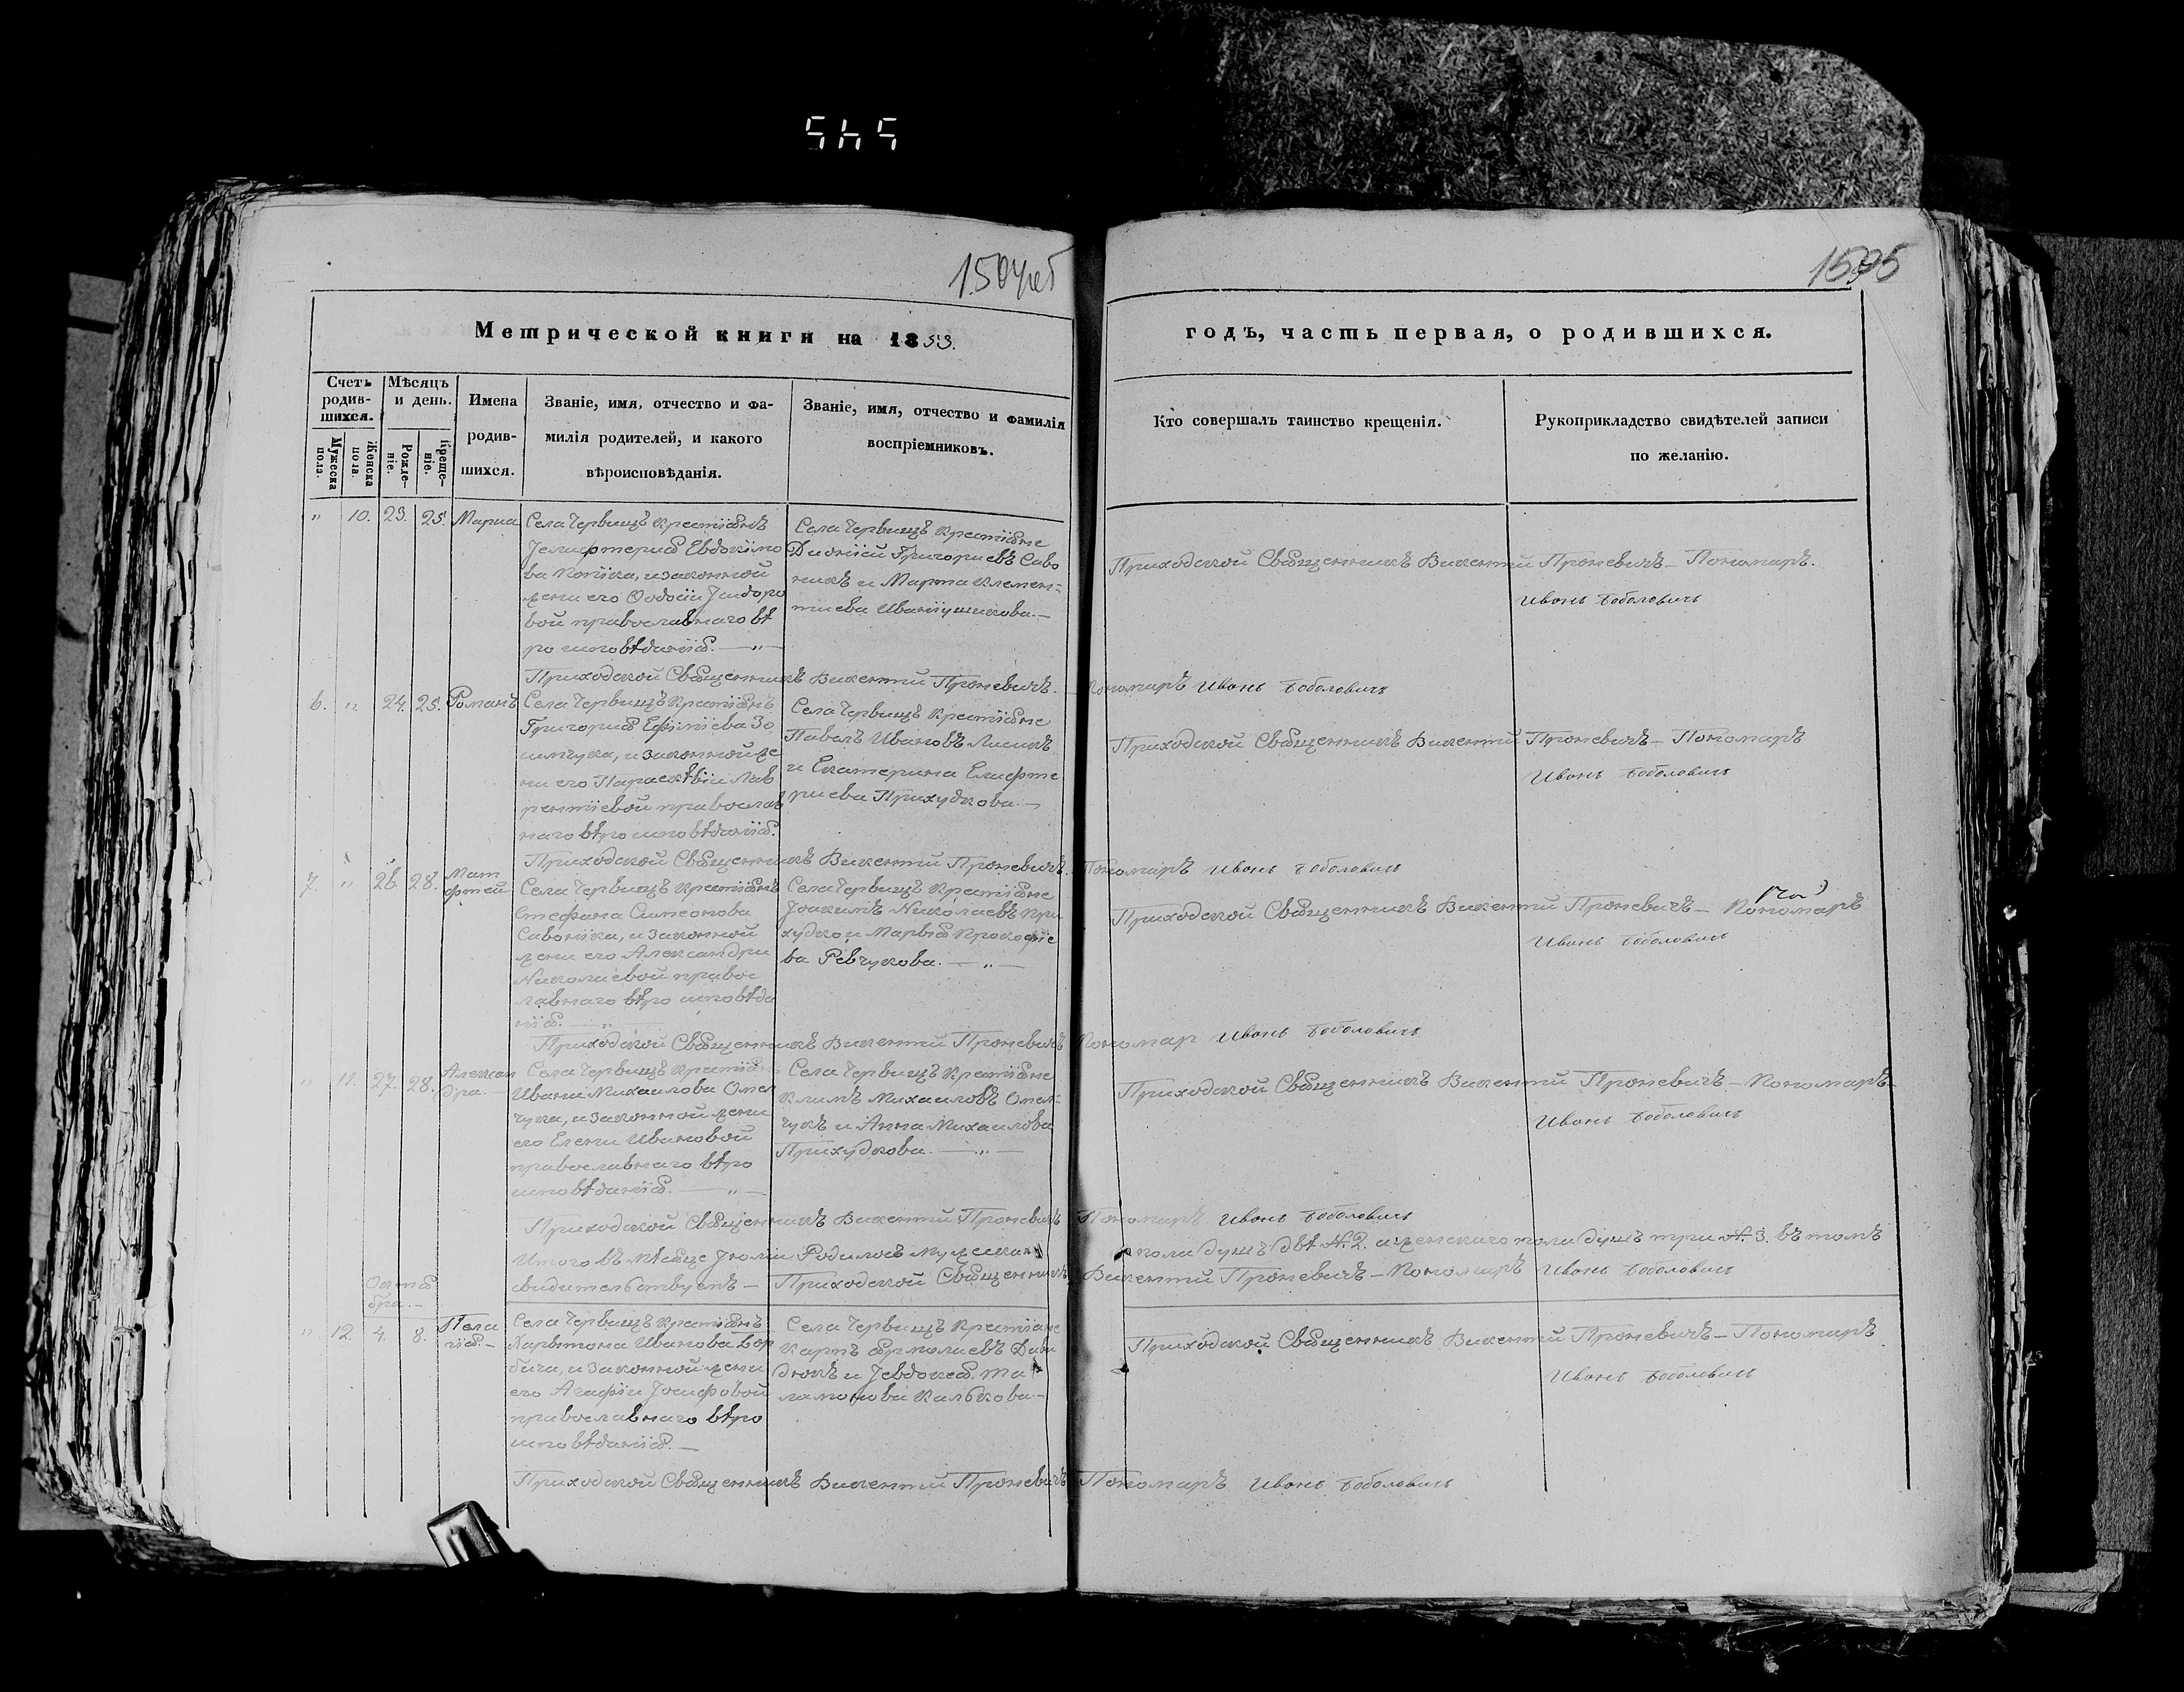 545
1504 об
1505
Метрической книги на 1853.
годъ, часть первая, о родившихся.
Счетъ родив-шихся.
Мѣсяцъ и день.
Имена родив-шихся.
Званіе, имя, отчество и фа-
милія родителей, и какого
вѣроисповѣданія.
Званіе, имя, отчество и фамилія
воспріемниковъ.
Кто совершалъ таинство крещенія.
Рукоприкладство свидѣтелей записи
по желанію.
Мужеска пола.
Женска пола.
Рожде-ніе.
Креще-ніе.
" 10. 23. 25. Мариа
Села Червищъ Крестіянѣ
Іелифтерия Евдокімо
ва Копіка, и законной
жени его Ѳеодосіи Ісидоро
вой православнаго вѣ
ро исповѣданія. — " —
Села Червищъ Крестіяне
Дионіси Григориевъ Саво
никъ и Марта Клемен=
тиева Иваніушикова. —
Приходской Священникъ Викентий Проневичъ — Пономаръ.
Иванъ Боболовичъ
Приходской Священникъ Викентий Проневичъ. — Пономаръ Иванъ Боболовичъ
6. " 24. 25. Романъ
Села Червищъ Крестіянъ
Григория Ефімиева Зо
симчука, и законной же
ни его Параскѣвіи Лав
рентіевой православ
наго вѣро исповѣданія.
Села Червищъ Крестіяне
Павелъ Ивановъ Лисикъ
и Екатерина Елифте
риева Прихудкова. —
Приходской Священникъ Викентий Проневичъ — Пономаръ
Иванъ Боболовичъ
Приходской Священникъ Викентий Проневичъ. Пономаръ Иванъ Боболовичъ
7. " 26. 28. Мат
фтей
Села Червищъ Крестіянъ
Стефана Симеонова
Савоніка, и законной
жени его Александри
Николаевой правос
лавнаго вѣро исповѣда
нія. — "
Села Червищъ Крестіяне
Іоакимъ Николаевъ При
худко и Марвія Прокофіе
ва Ревчукова. — " —
Приходской Священникъ Викентий Проневичъ — Пономаръ
Иванъ Боболовичъ
Приходской Священникъ Викентий Проневичъ Пономар Иванъ Боболовичъ
" 11. 27. 28. Алексан
дра. —
Села Червищъ Крестіянъ
Ивана Михаилова Омел
чука, и законной жени
его Елени Ивановой
православнаго вѣро
исповѣданія. — " —
Села Червищъ Крестіяне
Климъ Михаиловъ Омел=
чукъ и Анна Михаилова
Прихудкова. — " —
Приходской Священникъ Викентий Проневичъ — Пономаръ
Иванъ Боболовичъ
Приходской Священникъ Викентий Проневичъ Пономаръ Иванъ Боболовичъ
Итого въ мѣсяце Іюлии Родилось мужескаго пола душъ двѣ №. 2. а женскаго пола душъ три №. 3. въ томъ
свидителствуемъ — Приходской Священникъ Викентий Проневичъ — Пономаръ Иванъ Боболовичъ
Октя
бра. —
" 12. 4. 8. Пела
гія. —
Села Червищъ Крестіянъ
Харитона Иванова Бор
бича, и законной жени
его Агафіи Іосифовой
православнаго вѣро
исповѣданія. —
Села Червищъ Крестіяне
Карпъ Ярмолаевъ Дави
дюкъ и Іевдокея
Калькова. —
Приходской Священникъ Викентий Проневичъ — Пономаръ
Иванъ Боболовичъ
Приходской Священникъ Викентий Проневичъ Пономаръ Иванъ Боболовичъ